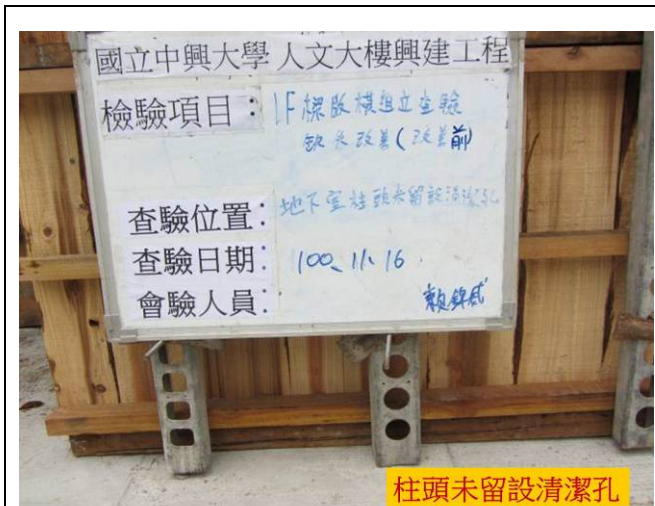 國立中興大學 人文大樓興建工程
檢驗項目： 1F樑版模組立查驗
缺失改善（改善前）
查驗位置： 地下室柱頭未留設清潔孔
查驗日期： 100、11、16
會驗人員：
柱頭未留設清潔孔